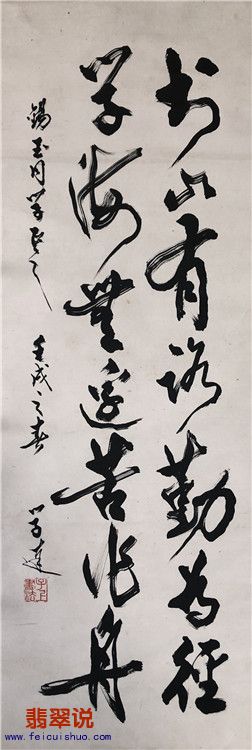 书山有路勤为径
学海無边苦作舟
錫玉同学正之
壬戌之春
翡翠说
www.feicuishuo.com